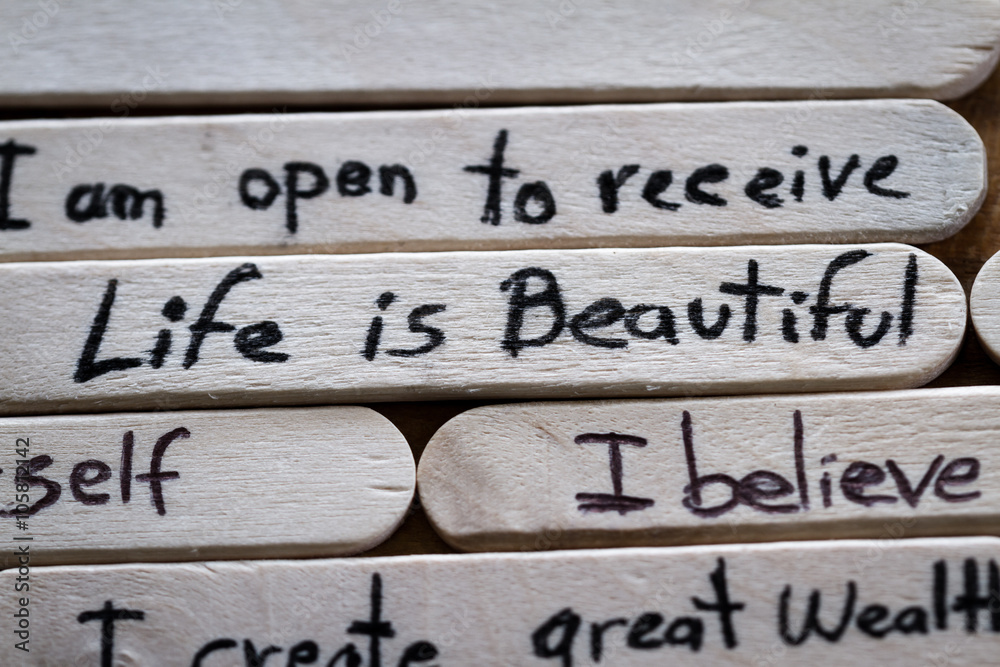 I am open to receive
Life is Beautiful
self I believe
I create great Wealth
Adobe Stock | #105872142